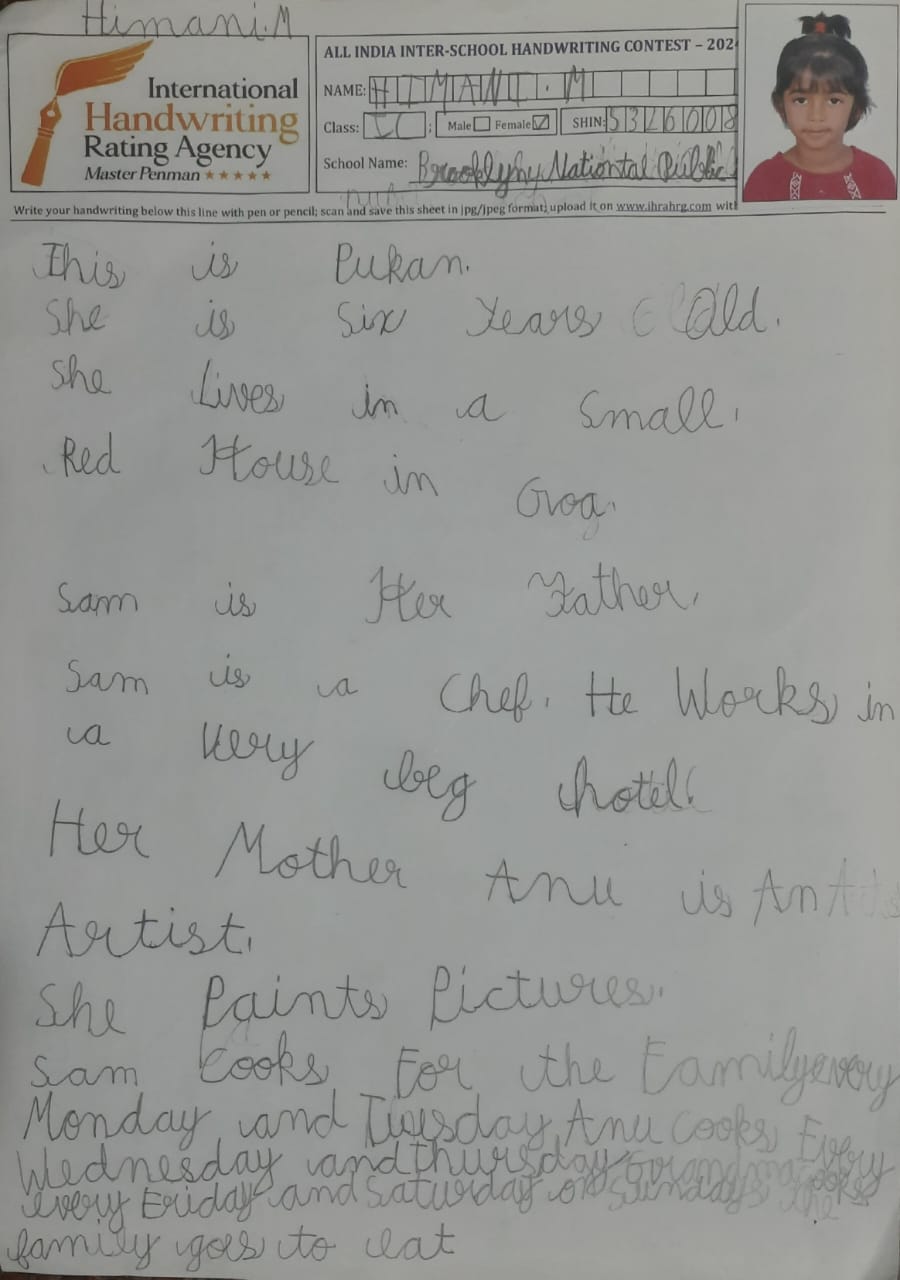 Himani.M
ALL INDIA INTER-SCHOOL HANDWRITING CONTEST – 202
International
Handwriting
Rating Agency
Master Penman ★★★★★
NAME: HIMANI.M
Class: IC : Male Female ☑ SHIN: 5326008
School Name: Brooklyny Nationtal Public
Write your handwriting below this line with pen or pencil; scan and save this sheet in jpg/jpeg format; upload it on www.ihrahrg.com with
This is Pukan.
She is Six Years Old.
She Lives in a Small.
Red House in Goa.
Sam is Her Father.
Sam is a Chef. He Works in
a Very beg hotel
Her Mother Anu is An
Artist.
She Paints Pictures.
Sam Cooks For the Family every
Monday and Tuesday, Anu Cooks Every
Wednesday and thursday Grandma cooks
every Friday and Saturday on Sundays the
family goes to eat